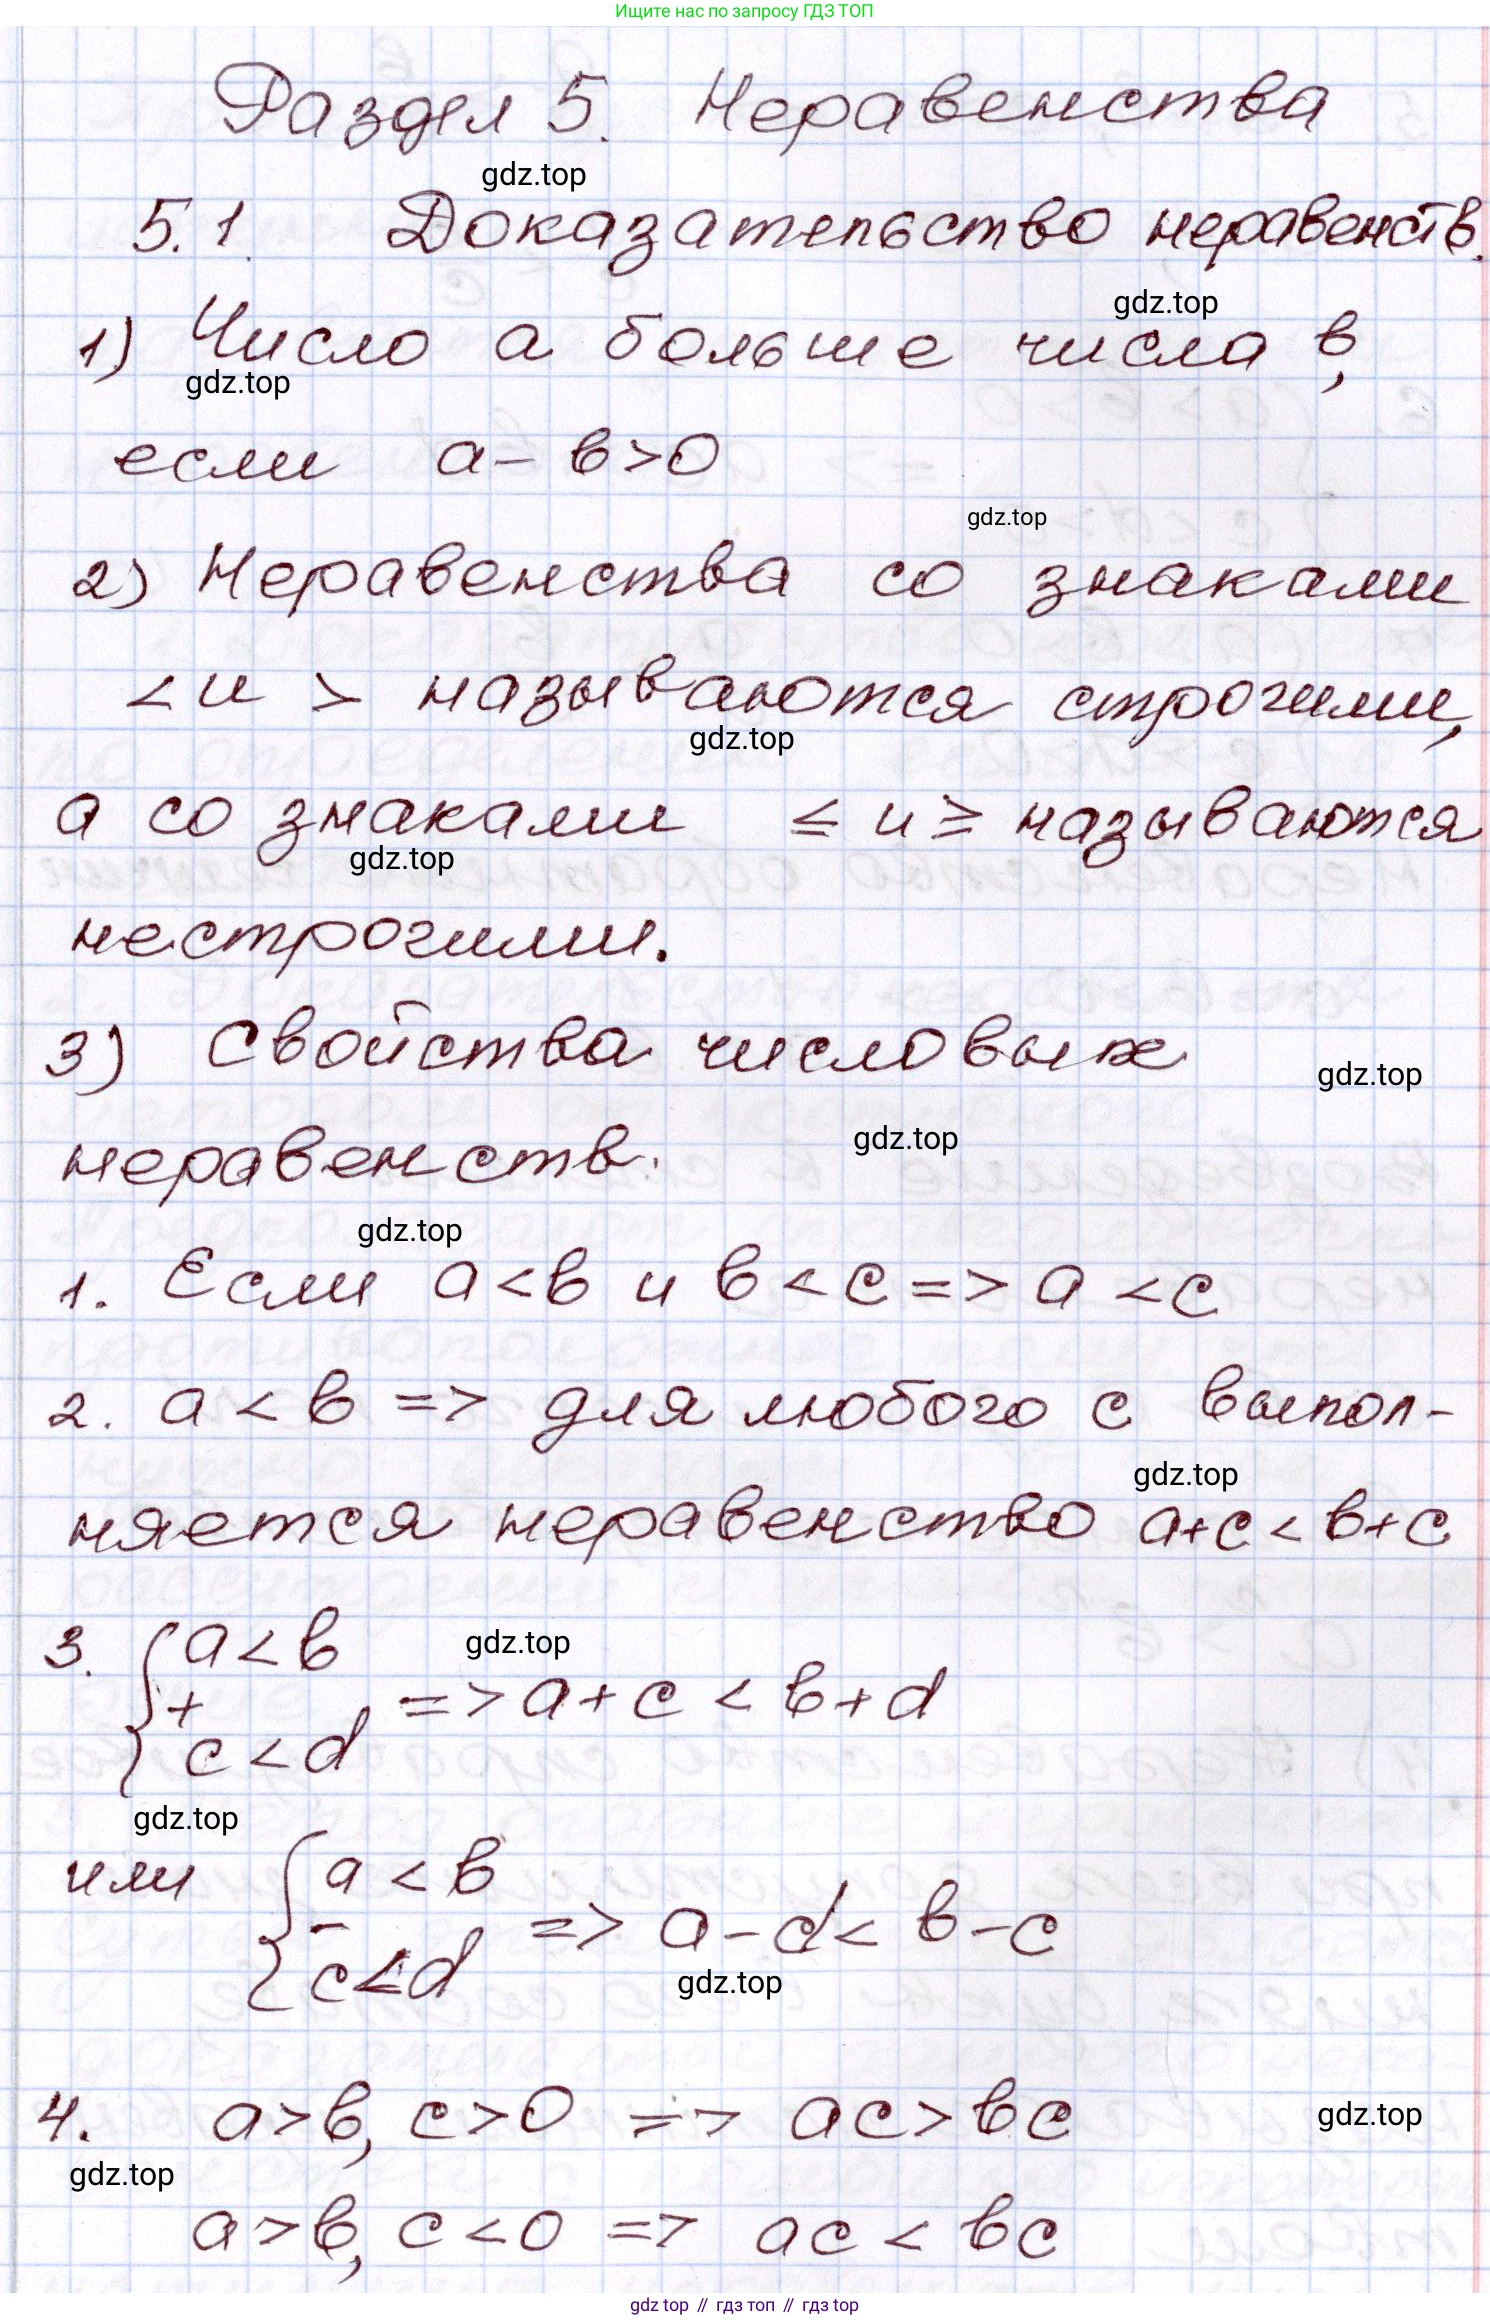 Ищите нас по запросу ГДЗ ТОП
Раздел 5. Неравенства
gdz.top
5.1. Доказательство неравенств.
gdz.top
1) Число а больше числа в,
gdz.top
если а - в > 0
gdz.top
2) Неравенства со знаками
< и > называются строгими,
gdz.top
а со знаками ≤ и ≥ называются
gdz.top
нестрогими.
3) Свойства числовых
gdz.top
gdz.top
неравенств.
gdz.top
1. Если a < в и в < c => a < c
2. a < в => для любого с выпол-
gdz.top
няется неравенство a+c < в+c
3. { a < в
gdz.top
+ => a + c < в + d
c < d
gdz.top
или { a < в
- => a - d < в - c
c < d
gdz.top
4. a > в, c > 0 => ac > вc
gdz.top
gdz.top
a > в, c < 0 => ac < вc
gdz top // гдз топ // гдз top